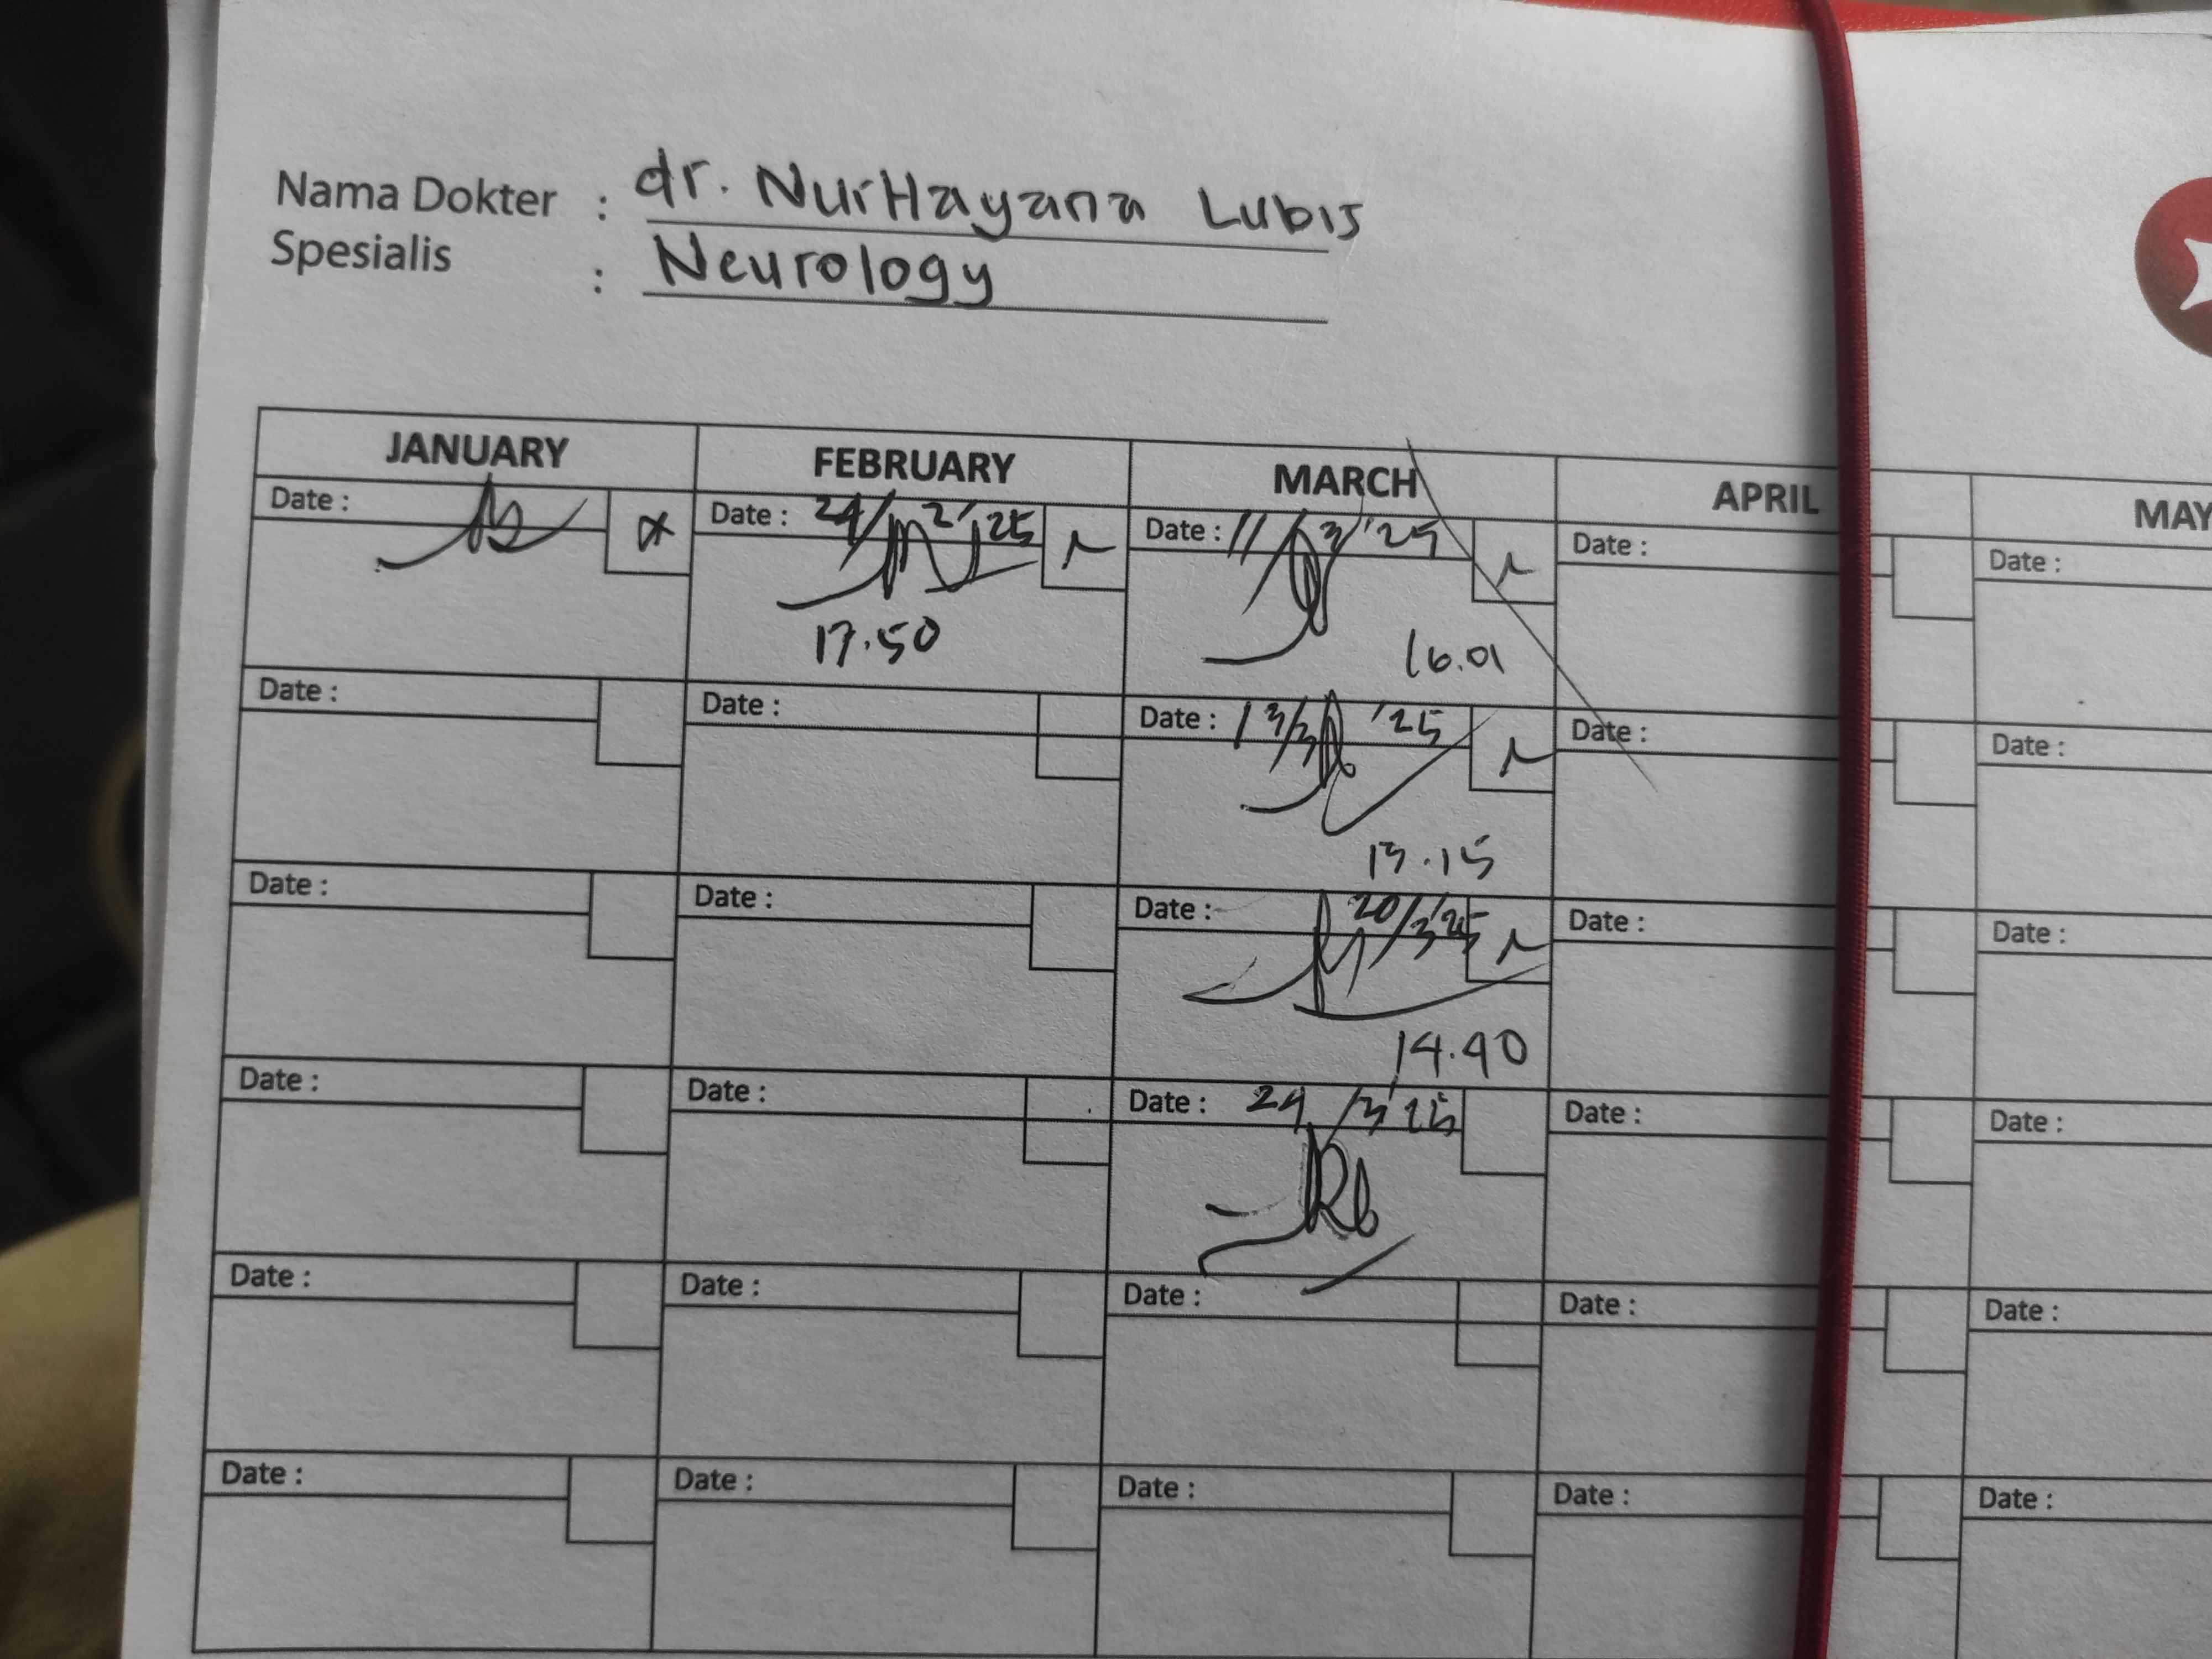 Nama Dokter : dr. NurHayana Lubis
Spesialis : Neurology
JANUARY FEBRUARY MARCH APRIL MAY
Date : Date : 24/2/'25 Date : 11/3/'25 Date : Date :
17.50 16.01
Date : Date : Date : 13/3 '25 Date : Date :
13.15
Date : Date : Date : 20/3/'25 Date : Date :
14.40
Date : Date : Date : 24/3'25 Date : Date :
Date : Date : Date : Date : Date :
Date : Date : Date : Date : Date :